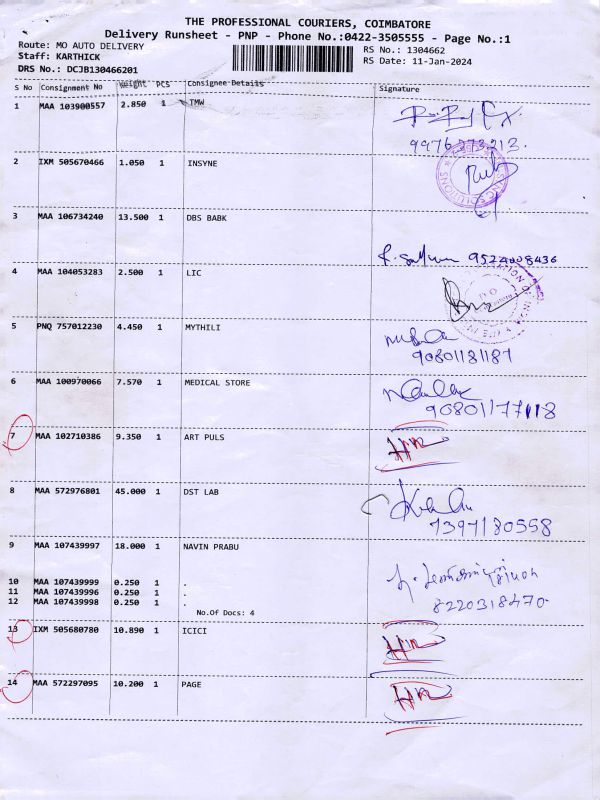 THE PROFESSIONAL COURIERS, COIMBATORE
Delivery Runsheet - PNP - Phone No.:0422-3505555 - Page No.:1
Route: MO AUTO DELIVERY RS No.: 1304662
Staff: KARTHICK RS Date: 11-Jan-2024
DRS No.: DCJB130466201
S No Consignment No Weight PCS Consignee Details Signature
1 MAA 103900557 2.850 1 TMW
2 IXM 505670466 1.050 1 INSYNE
3 MAA 106734240 13.500 1 DBS BABK
9524008436
4 MAA 104053283 2.500 1 LIC
5 PNQ 757012230 4.450 1 MYTHILI
90801181187
6 MAA 100970066 7.570 1 MEDICAL STORE
90801177118
7 MAA 102710386 9.350 1 ART PULS
8 MAA 572976801 45.000 1 DST LAB
7397180558
9 MAA 107439997 18.000 1 NAVIN PRABU
10 MAA 107439999 0.250 1 .
11 MAA 107439996 0.250 1 .
12 MAA 107439998 0.250 1 .
8220318470
No.Of Docs: 4
13 IXM 505680780 10.890 1 ICICI
14 MAA 572297095 10.200 1 PAGE